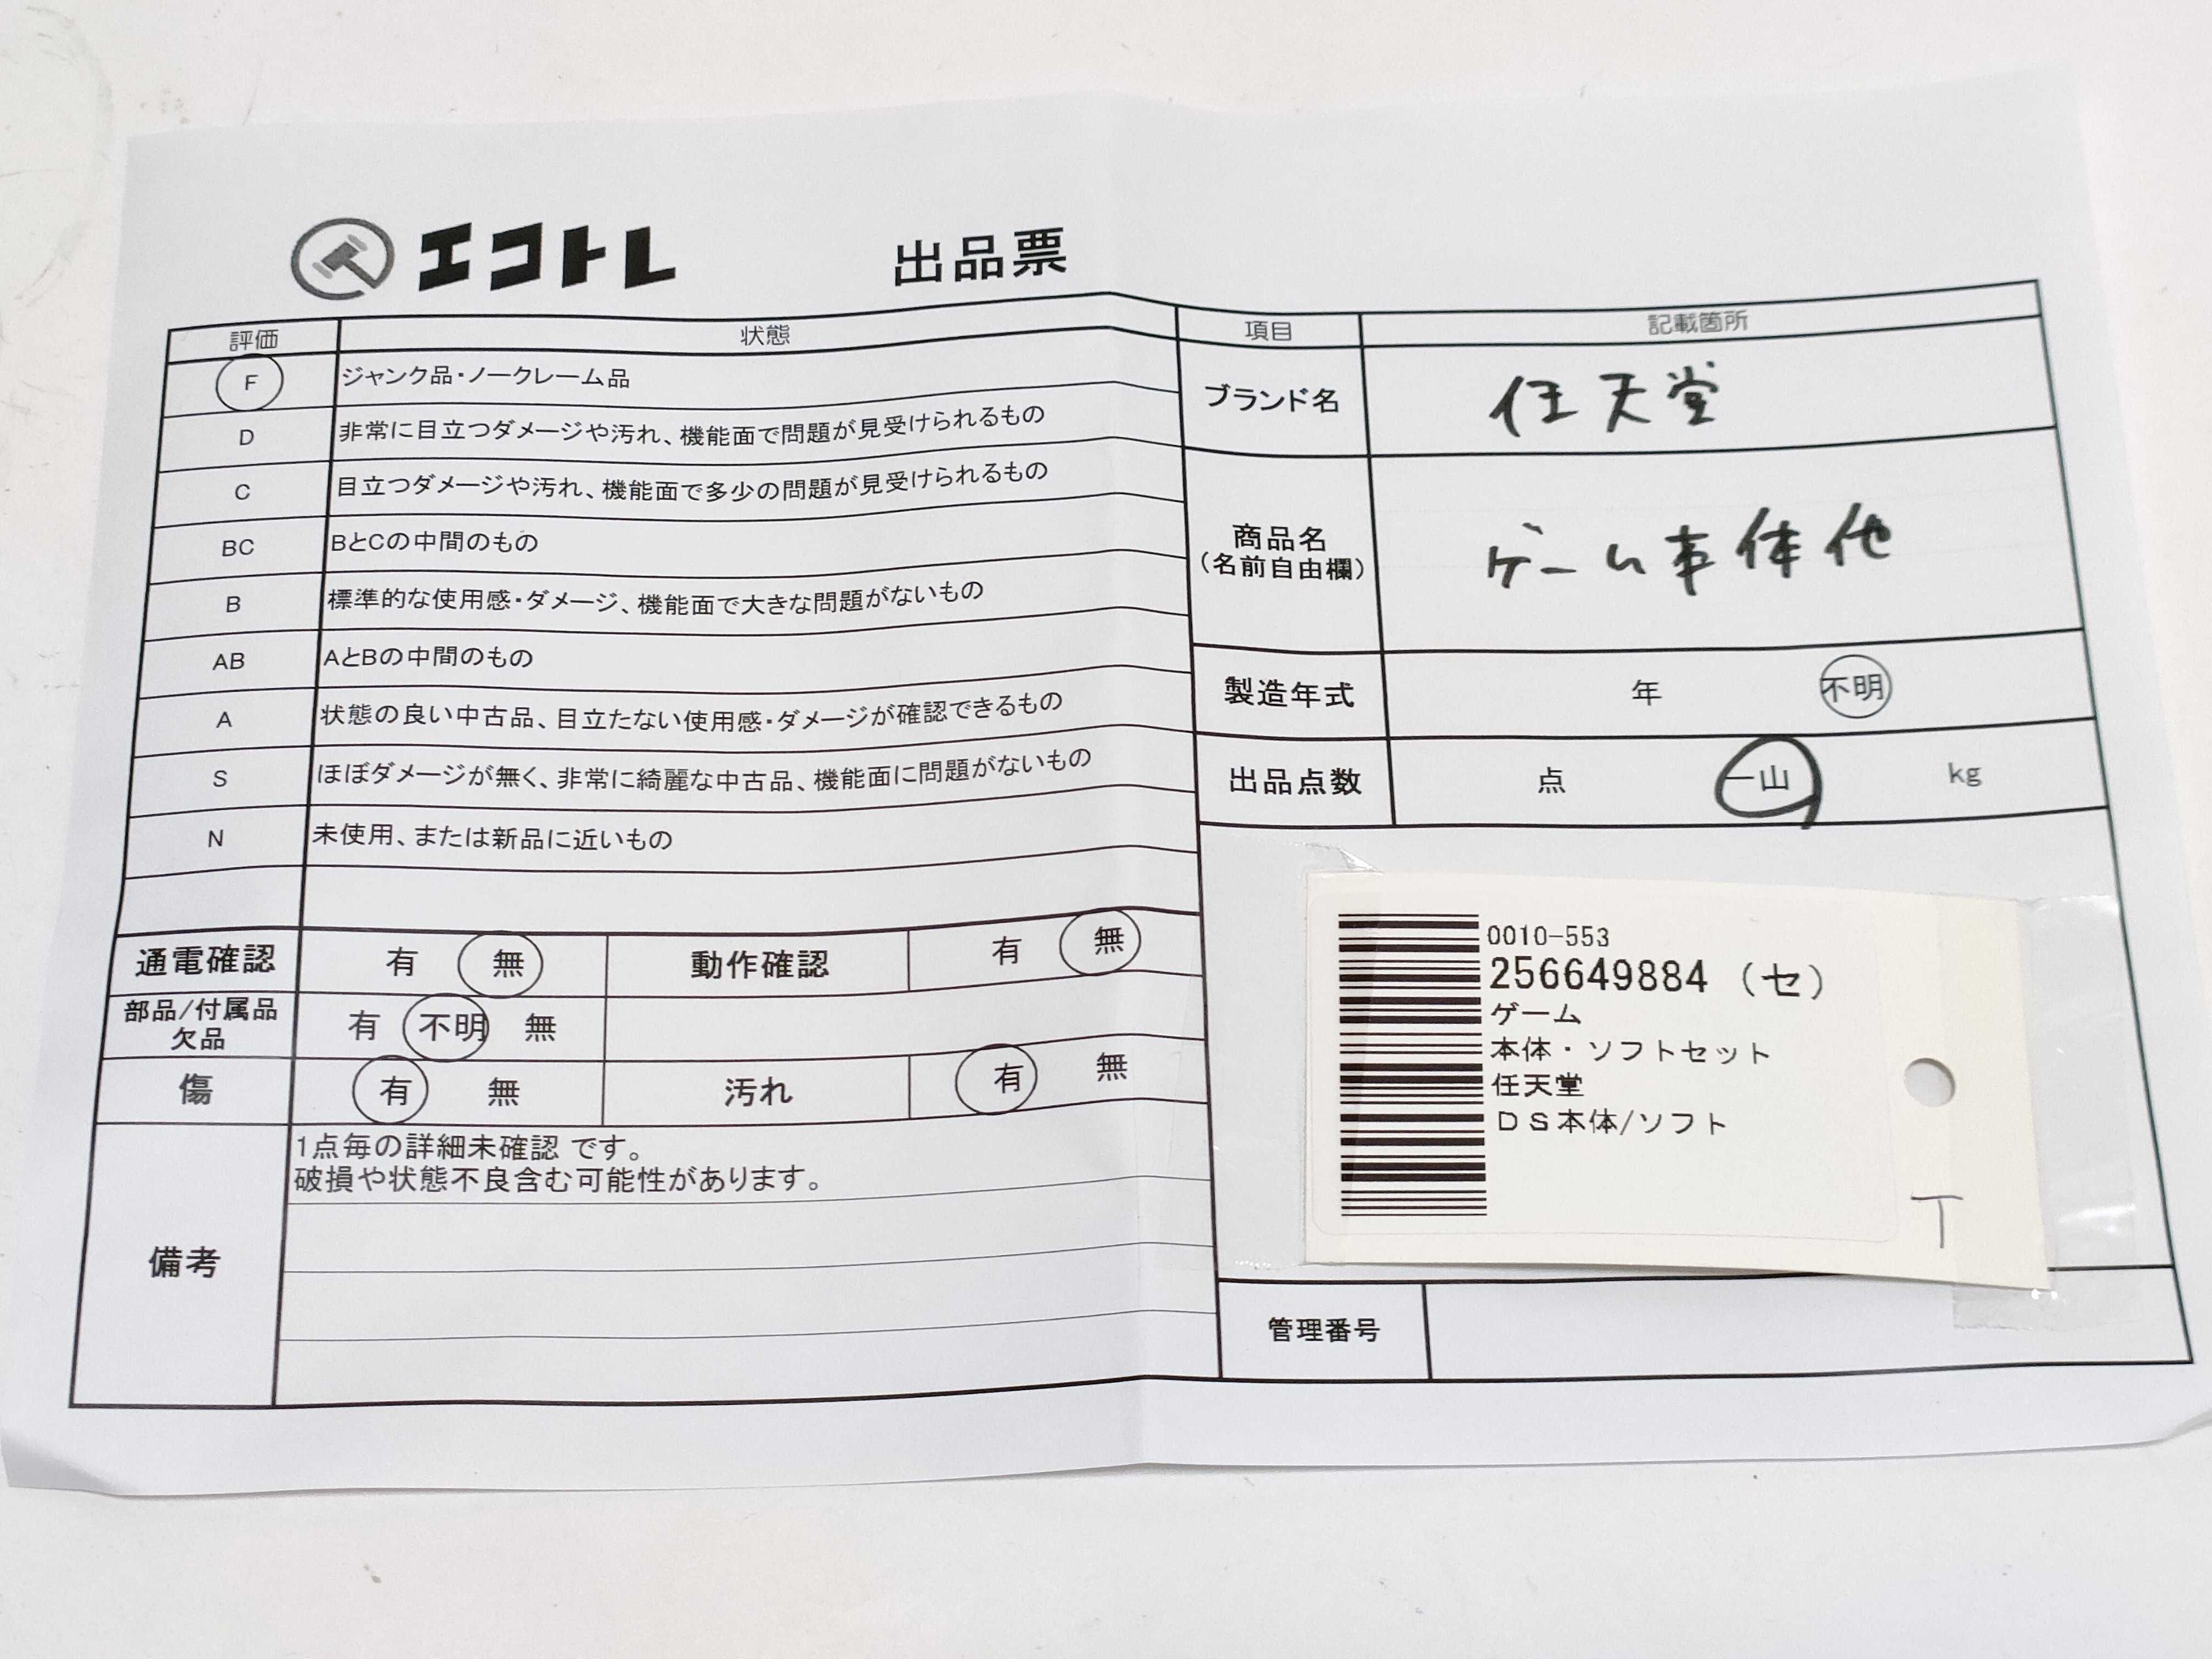 エコトレ 出品票
評価 状態
F ジャンク品・ノークレーム品
D 非常に目立つダメージや汚れ、機能面で問題が見受けられるもの
C 目立つダメージや汚れ、機能面で多少の問題が見受けられるもの
BC BとCの中間のもの
B 標準的な使用感・ダメージ、機能面で大きな問題がないもの
AB AとBの中間のもの
A 状態の良い中古品、目立たない使用感・ダメージが確認できるもの
S ほぼダメージが無く、非常に綺麗な中古品、機能面に問題がないもの
N 未使用、または新品に近いもの
通電確認 有 無 動作確認 有 無
部品/付属品
欠品 有 不明 無
傷 有 無 汚れ 有 無
備考
1点毎の詳細未確認 です。
破損や状態不良含む可能性があります。
項目 記載箇所
ブランド名 任天堂
商品名
(名前自由欄) ゲーム本体他
製造年式 年 不明
出品点数 点 一山 kg
0010-553
256649884 (セ)
ゲーム
本体・ソフトセット
任天堂
DS本体/ソフト
T
管理番号